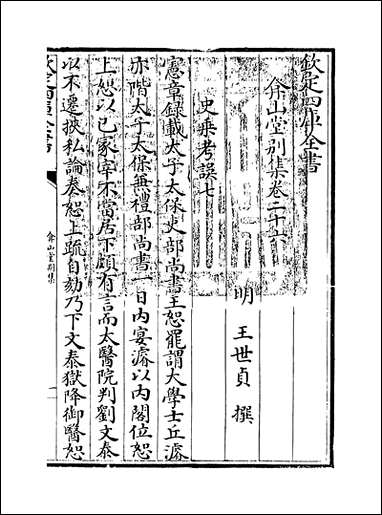 欽定四庫全書
弇山堂别集卷二十六
明 王世貞 撰
史乗考誤七
憲章録載太子太保吏部尚書王恕罷謂大學士丘濬
亦階太子太保兼禮部尚書一日内宴濬以内閣位恕
上恕以已冡宰不當居下頗有言而太醫院判劉文泰
以不遷挾私論奏恕上疏自劾乃下文泰獄降御醫恕
弇山堂别集